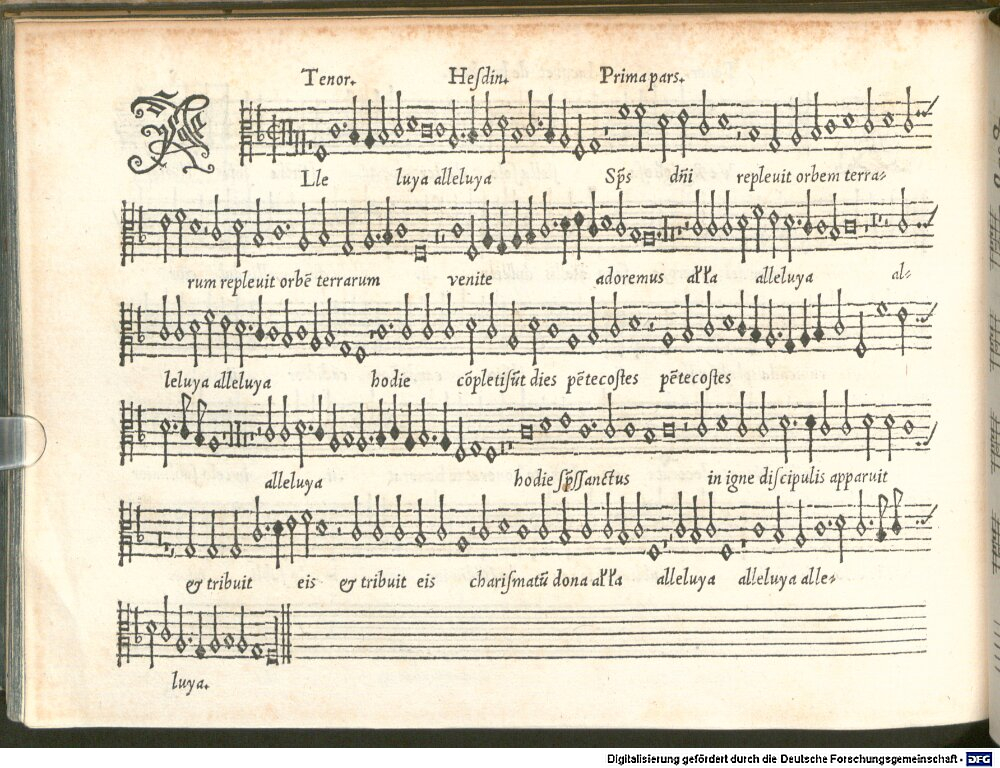 Tenor. Heſdin. Prima pars.
A Lle luya alleluya Sp̃s dñi repleuit orbem terra-
rum repleuit orbẽ terrarum venite adoremus alľľa alleluya al-
leluya alleluya hodie cõpletiſũt dies pẽtecoſtes pẽtecoſtes
alleluya hodie ſp̃ſſanctus in igne diſcipulis apparuit
& tribuit eis & tribuit eis chariſmatũ dona alľľa alleluya alleluya alle-
luya.
Digitalisierung gefördert durch die Deutsche Forschungsgemeinschaft - DFG